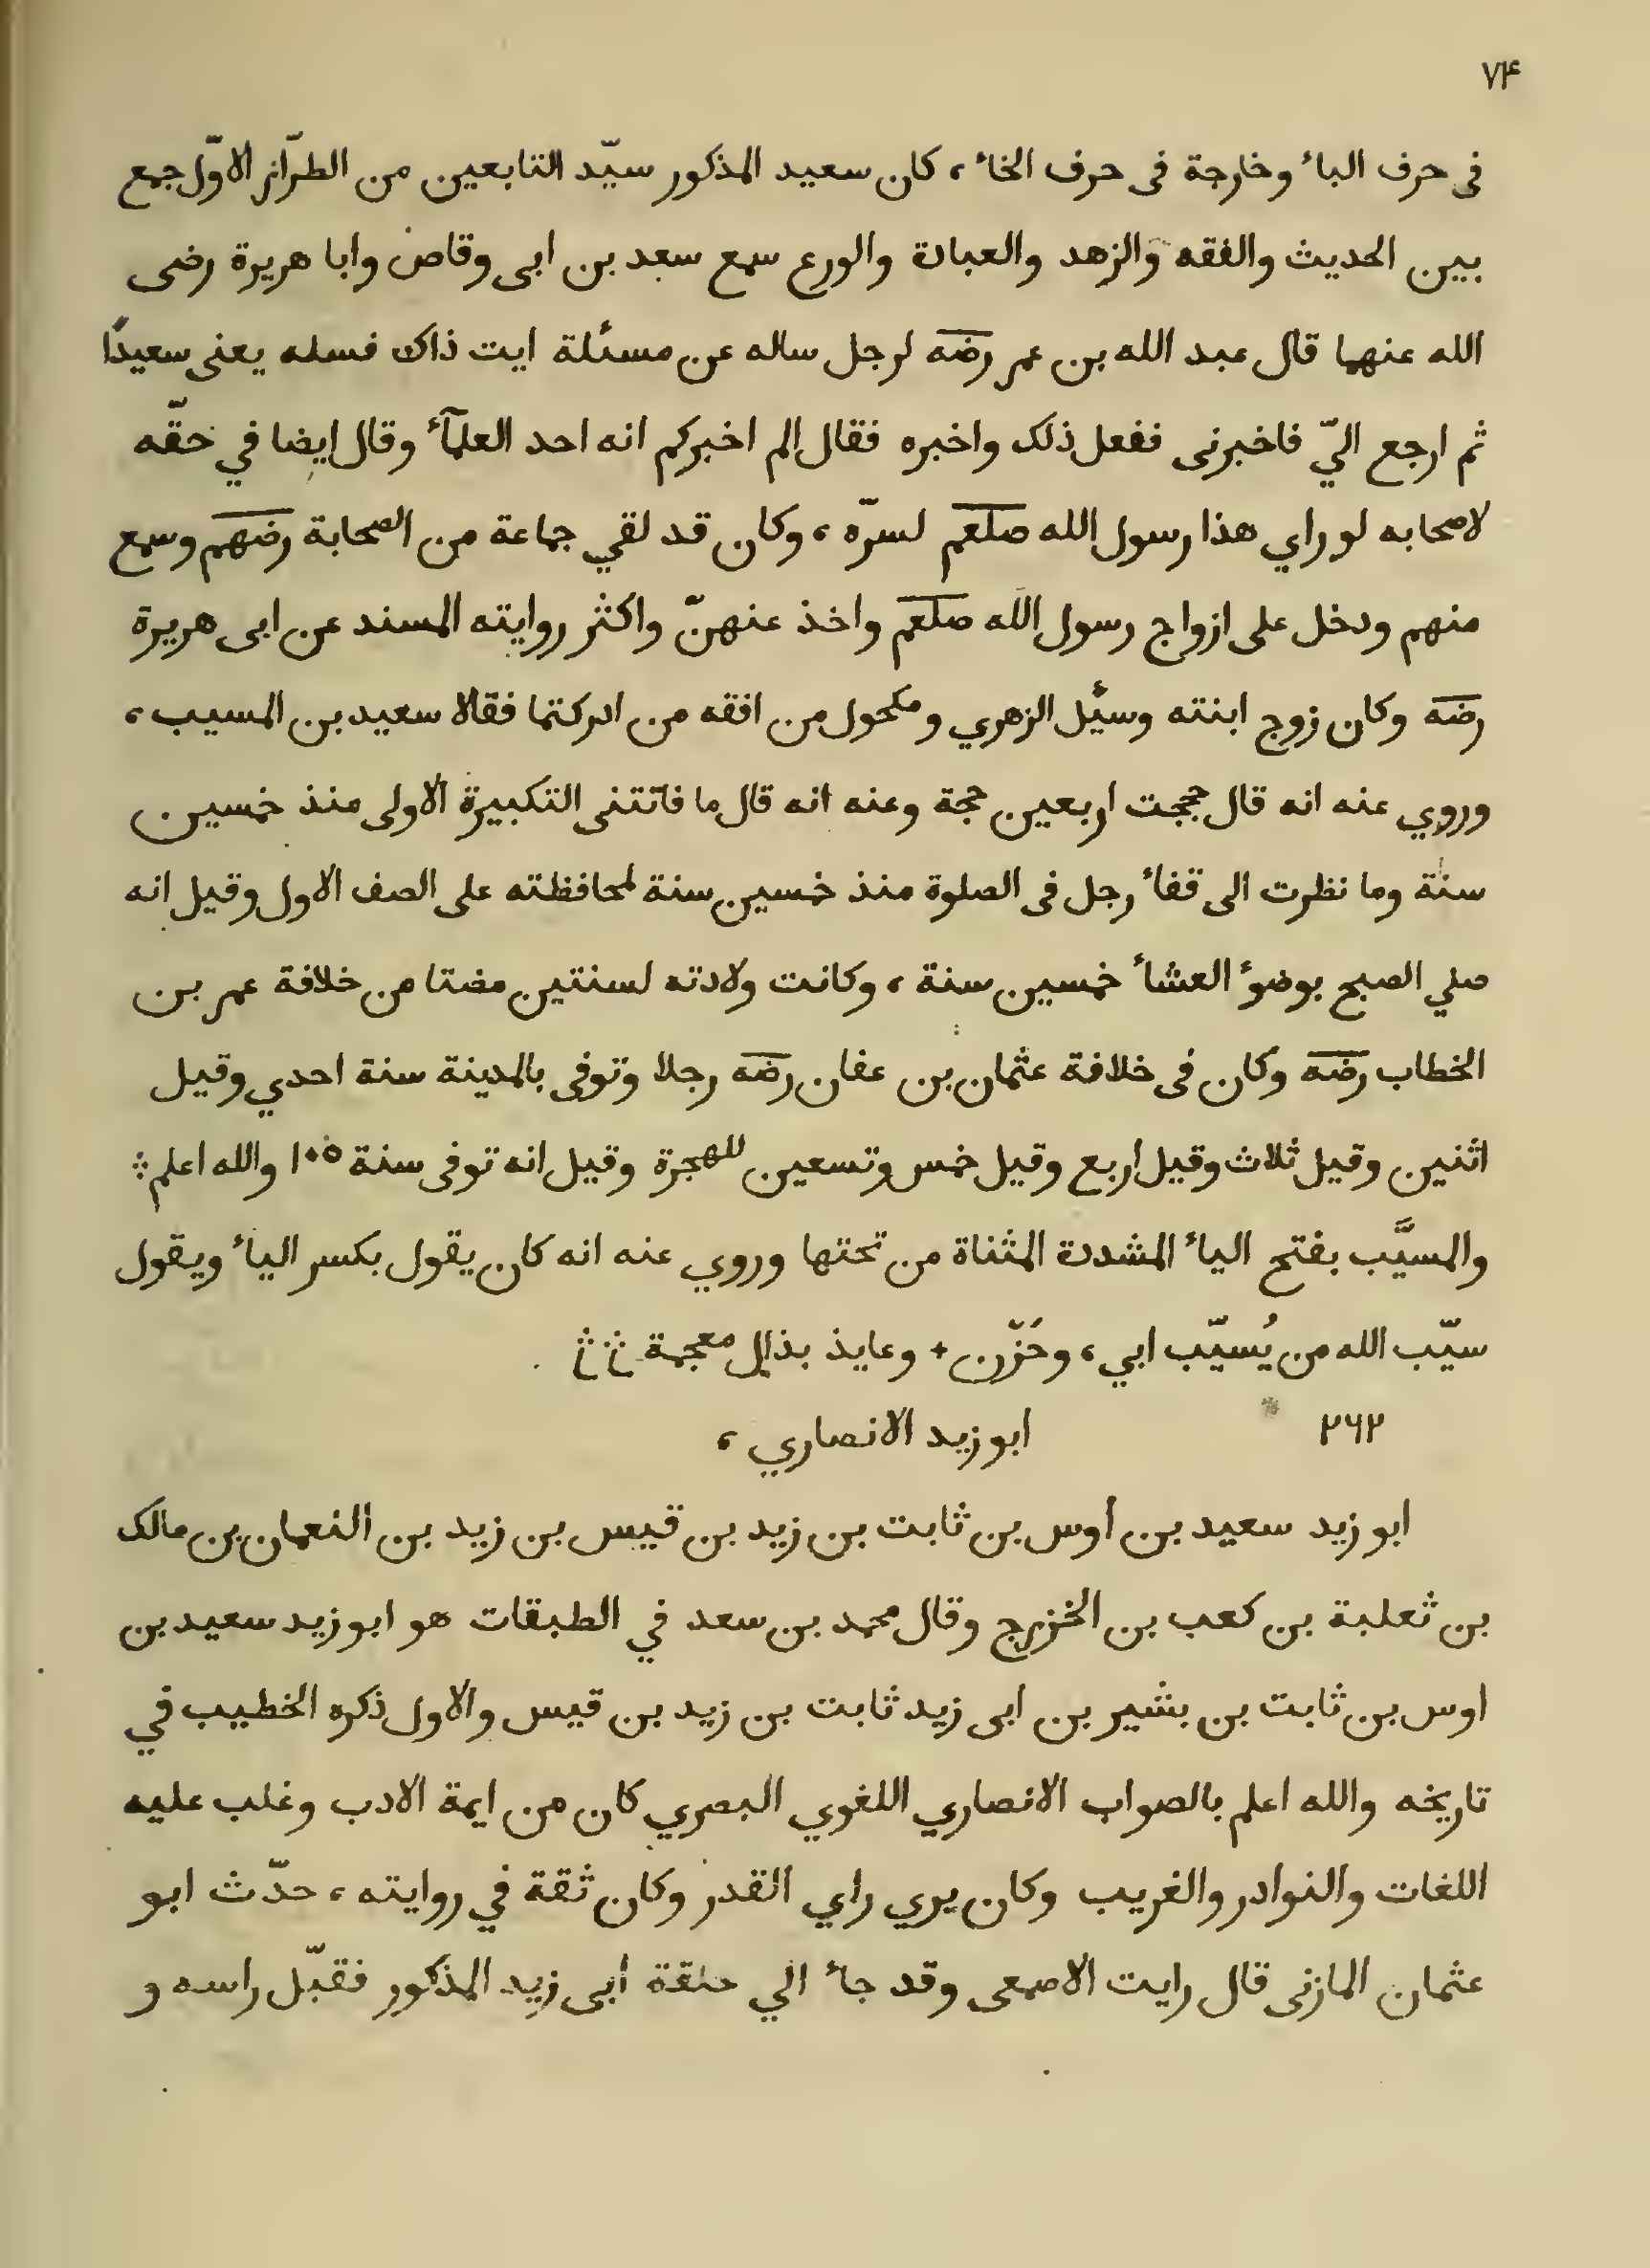 ٧۴
فى حرف الباء وخارجة فى حرف الخاء، كان سعيد المذكور سيّد التابعين من الطرّاز الاوّل جمع
بين الحديث والفقه والزهد والعبادة والورع سمع سعد بن ابى وقاص وابا هريرة رضى
الله عنهما قال عبد الله بن عمر رضه لرجل ساله عن مسئلة ايت ذاك فسله يعنى سعيدًا
ثم ارجع اليّ فاخبرنى ففعل ذلك واخبره فقال الم اخبركم انه احد العلمآء وقال ايضا في حقّه
لاصحابه لو راي هذا رسول الله صلعم لسرّه، وكان قد لقي جماعة من الصحابة رضهم وسمع
منهم ودخل على ازواج رسول الله صلعم واخذ عنهنّ واكثر روايته المسند عن ابى هريرة
رضه وكان زوج ابنته وسئل الزهري ومكحول من افقه من ادركتما فقالا سعيد بن المسيب،
وروي عنه انه قال حججت اربعين حجة وعنه انه قال ما فاتتنى التكبيرة الاولى منذ خمسين
سنة وما نظرت الى قفاء رجل فى الصلوة منذ خمسين سنة لمحافظته على الصف الاول وقيل انه
صلي الصبح بوضوء العشاء خمسين سنة، وكانت ولادته لسنتين مضتا من خلافة عمر بن
الخطاب رضه وكان فى خلافة عثمان بن عفان رضه رجلا وتوفى بالمدينة سنة احدي وقيل
اثنين وقيل ثلاث وقيل اربع وقيل خمس وتسعين للهجرة وقيل انه توفى سنة ١٠٥ والله اعلم ؞
والمسيَّب بفتح الياء المشددة المثناة من تحتها وروي عنه انه كان يقول بكسر الياء ويقول
سيّب الله من يُسيّب ابي، وحَزّن + وعايذ بذال معجمة
٢٦٢ ابو زيد الانصاري،
ابو زيد سعيد بن أوس بن ثابت بن زيد بن قيس بن زيد بن النعمان بن مالك
بن ثعلبة بن كعب بن الخزرج وقال محمد بن سعد في الطبقات هو ابو زيد سعيد بن
اوس بن ثابت بن بشير بن ابى زيد ثابت بن زيد بن قيس والاول ذكره الخطيب في
تاريخه والله اعلم بالصواب الانصاري اللغوي البصري كان من ايمة الادب وغلب عليه
اللغات والنوادر والغريب وكان يري راي القدر وكان ثقة في روايته، حدّث ابو
عثمان المازنى قال رايت الاصمعى وقد جاء الي حلقة أبى زيد المذكور فقبّل راسه و